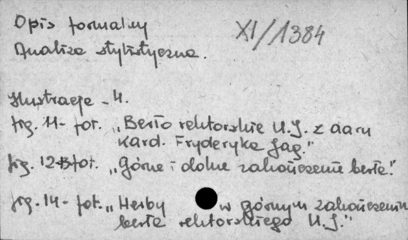 Opis formalny
XI/1384
Analiza stylistyczna.
Ilustracje - 4.
fig. 11 - fot. „Berło rektorskie U.J. z daru
Kard. Fryderyka Jag."
fig. 12-13 fot. „Górne i dolne zakończenie berła."
fig. 14 - fot. „Herby w górnym zakończeniu
berła rektorskiego U.J."